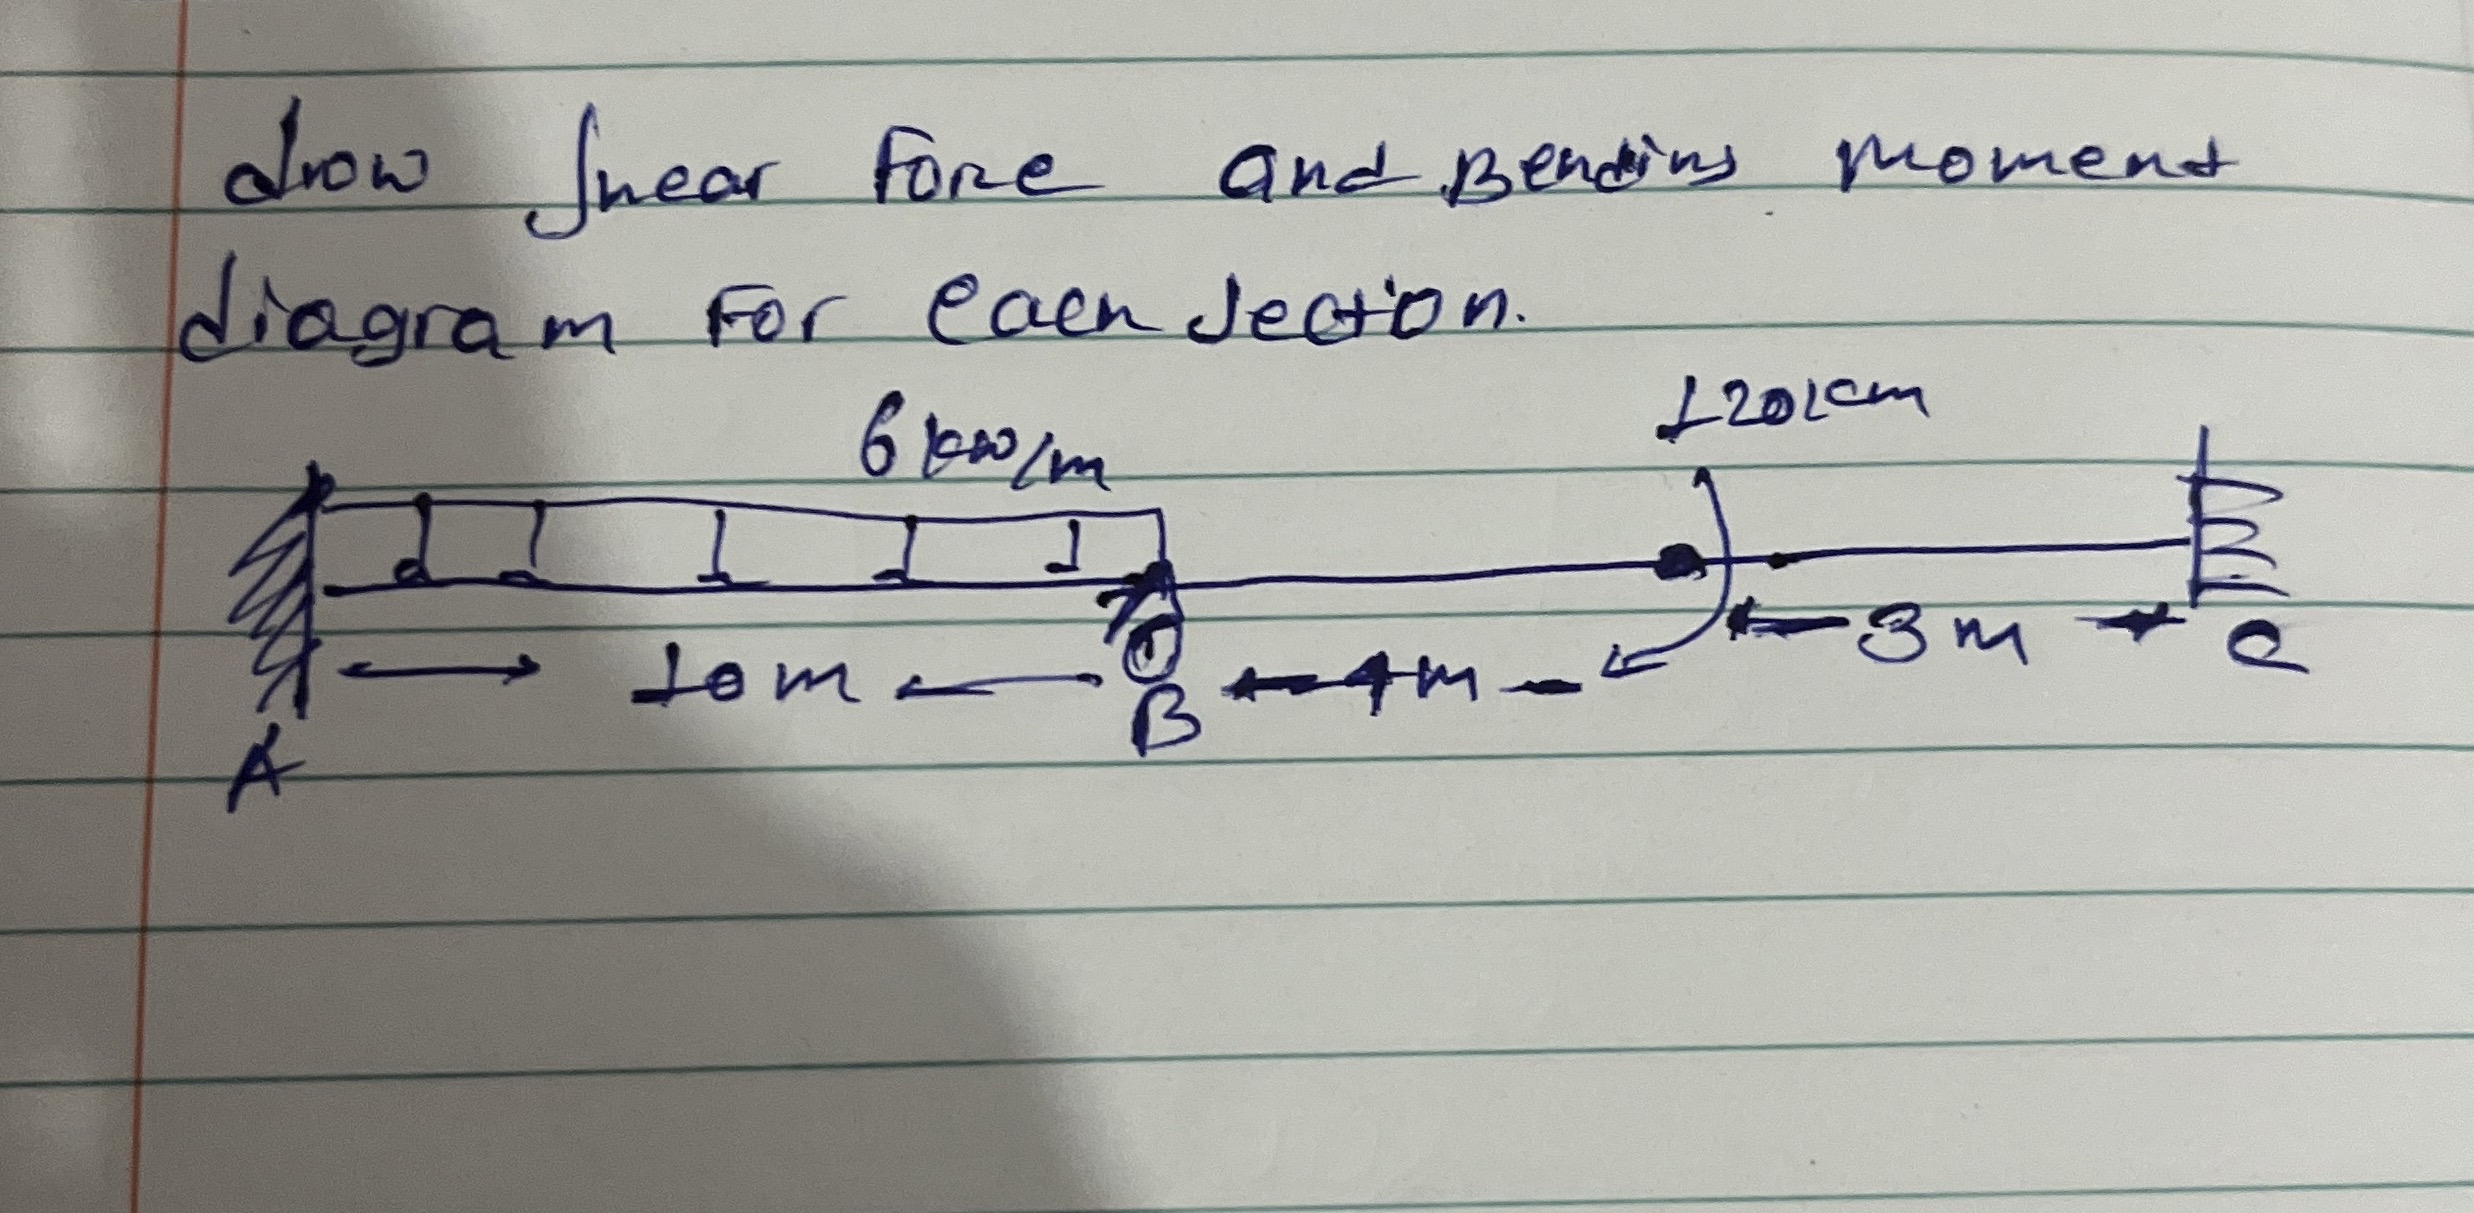 drow shear Force and Bending moment
diagram For each section.
6 kN/m
120kNm
10 m
4m
3 m
A
B
C